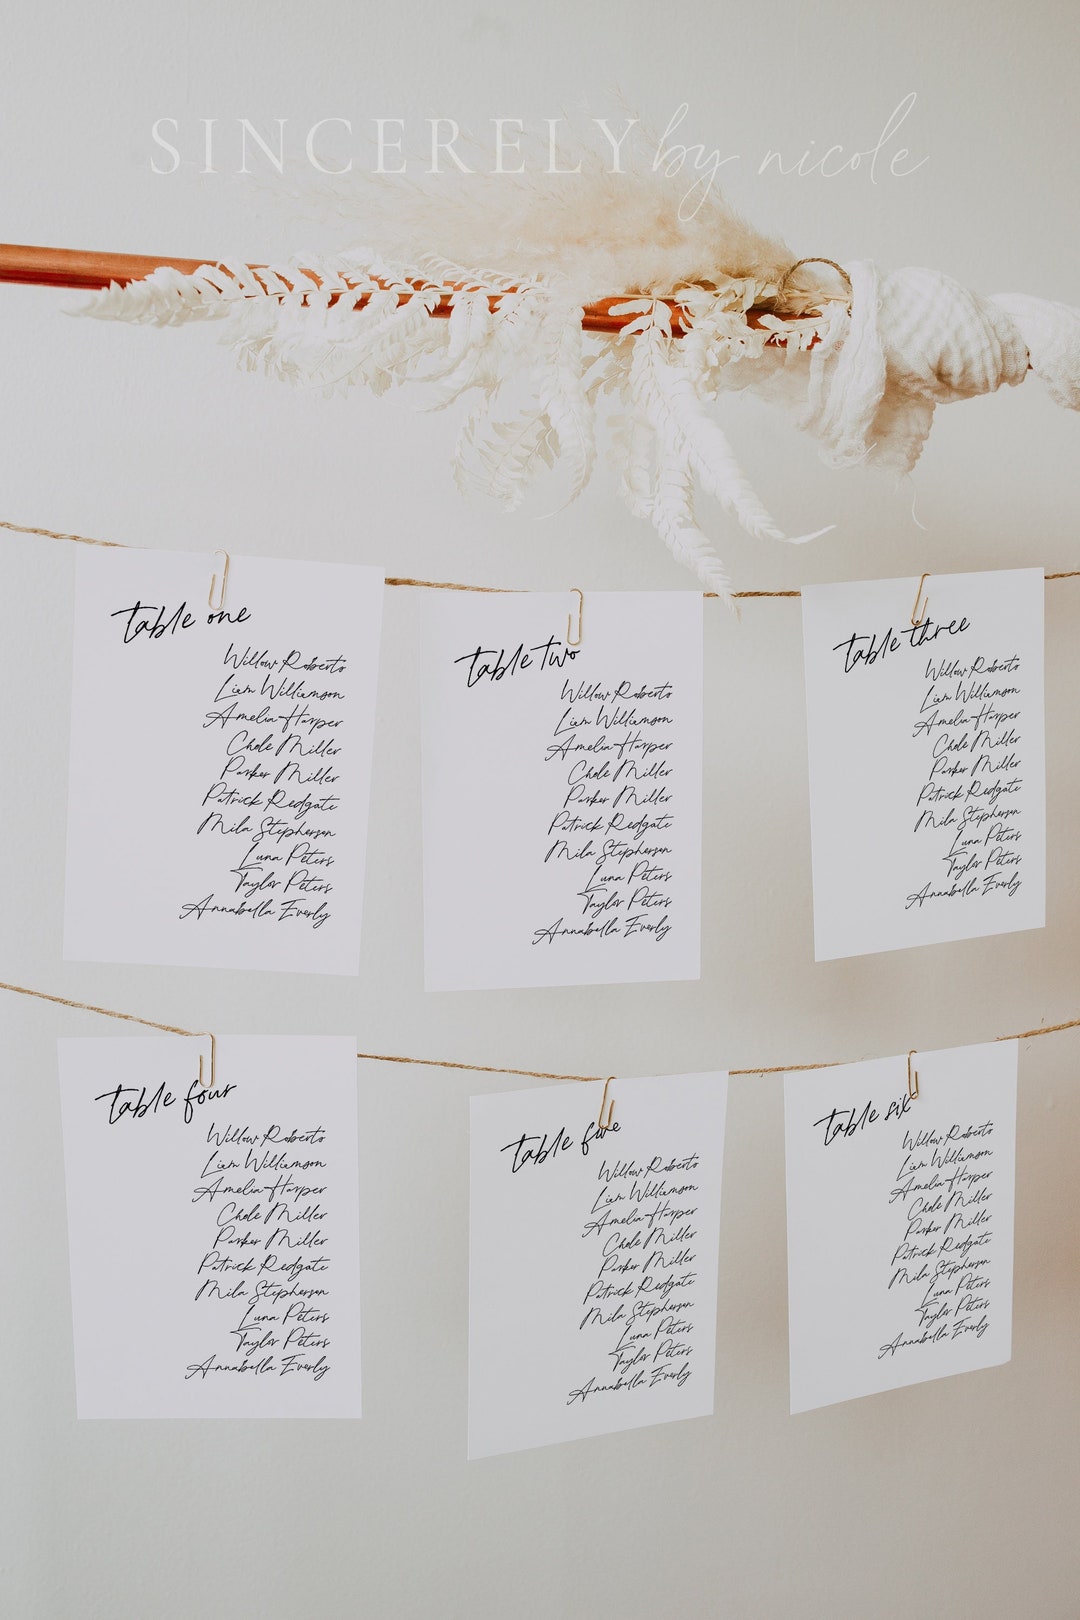 SINCERELY by nicole
table one
Willow Roberto
Liam Williamson
Amelia Harper
Chole Miller
Parker Miller
Patrick Redgate
Mila Stephenson
Luna Peters
Taylor Peters
Annabella Everly
table two
Willow Roberto
Liam Williamson
Amelia Harper
Chole Miller
Parker Miller
Patrick Redgate
Mila Stephenson
Luna Peters
Taylor Peters
Annabella Everly
table three
Willow Roberto
Liam Williamson
Amelia Harper
Chole Miller
Parker Miller
Patrick Redgate
Mila Stephenson
Luna Peters
Taylor Peters
Annabella Everly
table four
Willow Roberto
Liam Williamson
Amelia Harper
Chole Miller
Parker Miller
Patrick Redgate
Mila Stephenson
Luna Peters
Taylor Peters
Annabella Everly
table five
Willow Roberto
Liam Williamson
Amelia Harper
Chole Miller
Parker Miller
Patrick Redgate
Mila Stephenson
Luna Peters
Taylor Peters
Annabella Everly
table six
Willow Roberto
Liam Williamson
Amelia Harper
Chole Miller
Parker Miller
Patrick Redgate
Mila Stephenson
Luna Peters
Taylor Peters
Annabella Everly